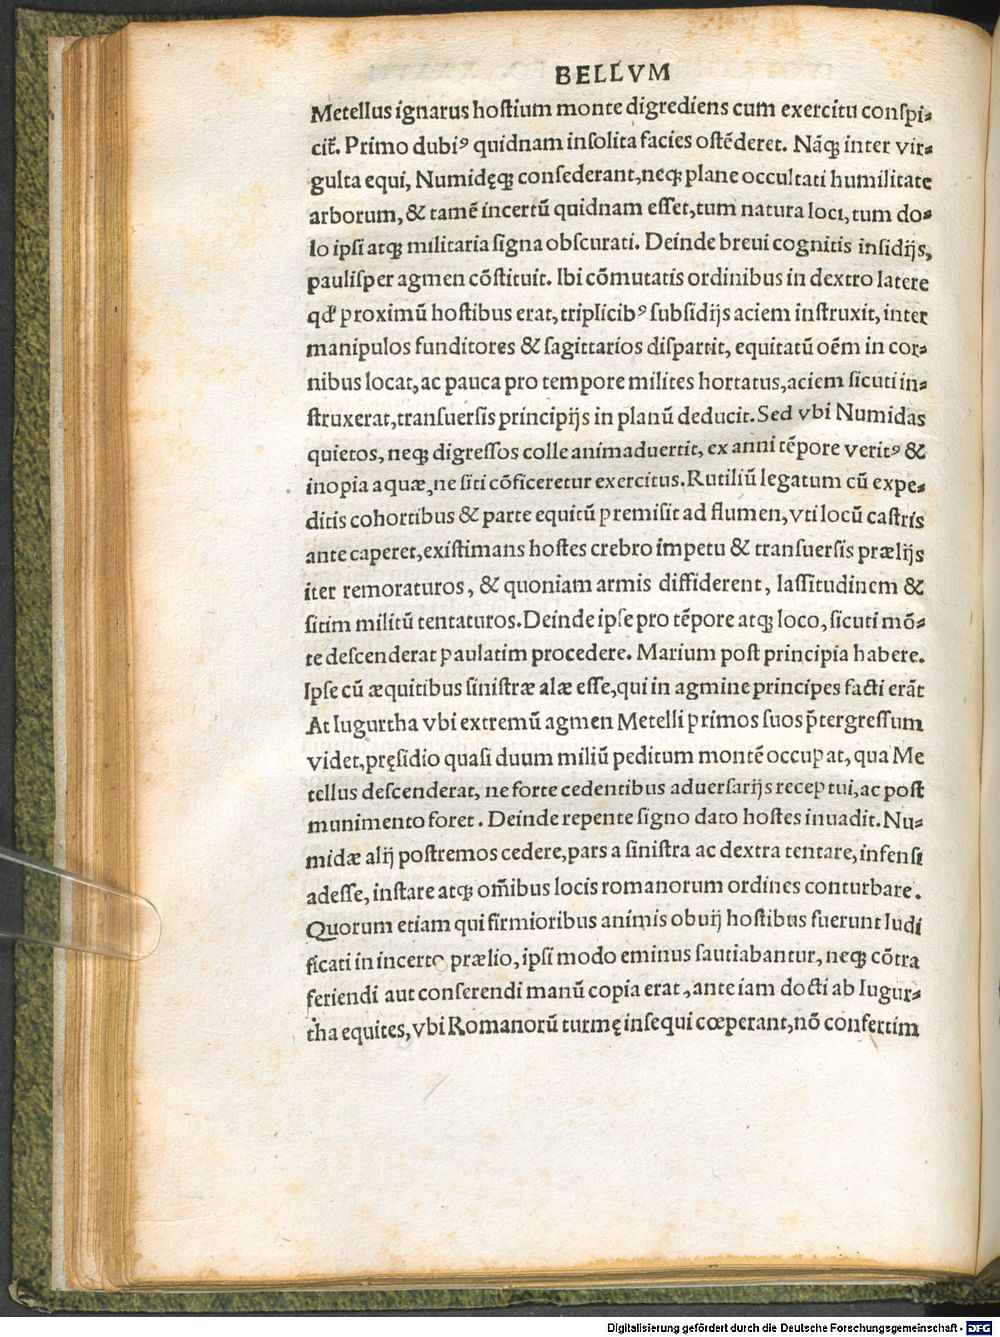 BELLVM
Metellus ignarus hostium monte digrediens cum exercitu conspi-
cit̃. Primo dubiꝰ quidnam insolita facies ostẽderet. Nãqꝫ inter vir-
gulta equi, Numidęqꝫ consederant, neqꝫ plane occultati humilitate
arborum, & tamẽ incertũ quidnam esset, tum natura loci, tum do-
lo ipsi atqꝫ militaria signa obscurati. Deinde breui cognitis insidijs,
paulisper agmen cõstituit. Ibi cõmutatis ordinibus in dextro latere
qđ proximũ hostibus erat, triplicibꝰ subsidijs aciem instruxit, inter
manipulos funditores & sagittarios dispartit, equitatũ oẽm in cor-
nibus locat, ac pauca pro tempore milites hortatus, aciem sicuti in-
struxerat, transuersis principijs in planũ deducit. Sed vbi Numidas
quietos, neqꝫ digressos colle animaduertit, ex anni tẽpore veritꝰ &
inopia aquæ, ne siti cõficeretur exercitus. Rutiliũ legatum cũ expe-
ditis cohortibus & parte equitũ premisit ad flumen, vti locũ castris
ante caperet, existimans hostes crebro impetu & transuersis prælijs
iter remoraturos, & quoniam armis diffiderent, lassitudinem &
sitim militũ tentaturos. Deinde ipse pro tẽpore atqꝫ loco, sicuti mõ-
te descenderat paulatim procedere. Marium post principia habere.
Ipse cũ æquitibus sinistræ alæ esse, qui in agmine principes facti erãt
At Iugurtha vbi extremũ agmen Metelli primos suos p̃tergressum
videt, pręsidio quasi duum miliũ peditum montẽ occupat, qua Me
tellus descenderat, ne forte cedentibus aduersarijs receptui, ac post
munimento foret. Deinde repente signo dato hostes inuadit. Nu-
midæ alij postremos cedere, pars a sinistra ac dextra tentare, infensi
adesse, instare atqꝫ om̃ibus locis romanorum ordines conturbare.
Quorum etiam qui firmioribus animis obuij hostibus fuerunt ludi
ficati in incerto prælio, ipsi modo eminus sautiabantur, neqꝫ cõtra
feriendi aut conserendi manũ copia erat, ante iam docti ab Iugur-
tha equites, vbi Romanorũ turmę insequi cœperant, nõ confertim
Digitalisierung gefördert durch die Deutsche Forschungsgemeinschaft - DFG